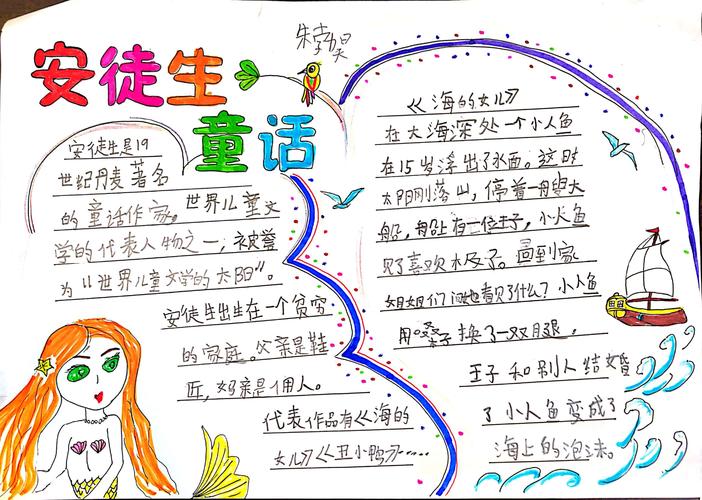 安徒生
童话
安徒生是19
世纪丹麦著名
的童话作家。世界儿童文
学的代表人物之一,被誉
为“世界儿童文学的太阳”。
安徒生出生在一个贫穷
的家庭。父亲是鞋
匠,妈亲是佣人。
代表作品有《海的
女儿》《丑小鸭》……
《海的女儿》
在大海深处一个小人鱼
在15岁浮出了水面。这时
太阳刚落山,停着一艘大
船,船上有一位王子,小人鱼
见了喜欢极了。回到家
姐姐们问她看见了什么?小人鱼
用嗓子换了一双月退。
王子和别人结婚
了小人鱼变成了
海上的泡沫。